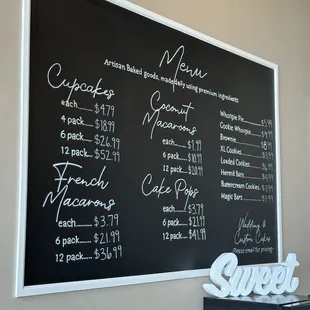 Menu
Artisan Baked goods, made daily using premium ingredients
Cupcakes
each........ $4.79
4 pack...... $18.99
6 pack...... $26.99
12 pack..... $52.99
French
Macarons
each........ $3.79
6 pack...... $21.99
12 pack..... $36.99
Coconut
Macaroons
each........ $1.99
6 pack...... $10.99
12 pack..... $20.99
Cake Pops
each........ $3.79
6 pack...... $21.99
12 pack..... $41.99
Whoopie Pie
Cookie Whoopie
Brownie
XL Cookies
Loaded Cookies
Hermit Bars
Buttercream Cookies
Magic Bars
Wedding &
Custom Cakes
Please email for pricing!
Sweet